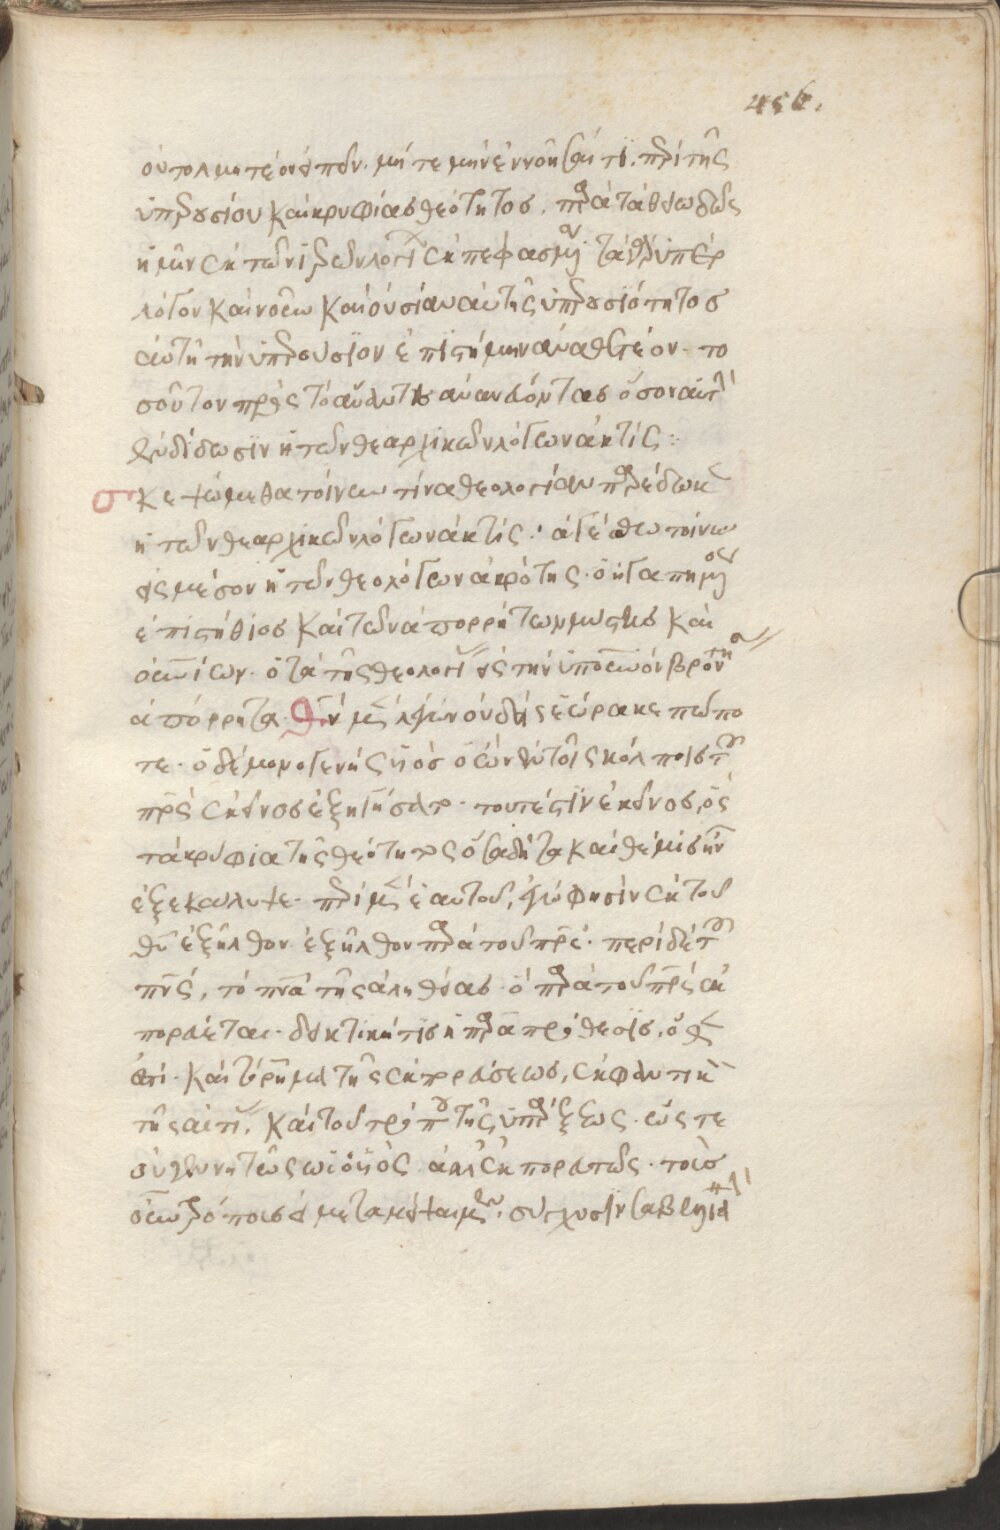 456.
οὐ τολμητέον εἰπεῖν. μήτε μὴν ἐννοῆσαί τι. περὶ τῆς
ὑπερουσίου καὶ κρυφίας θεότητος. παρὰ τὰ θειωδῶς
ἡμῖν ἐκ τῶν ἱερῶν λογίων ἐκπεφασμένα. τὰ γὰρ ὑπὲρ
λόγον καὶ νοῦν καὶ οὐσίαν αὐτῆς ὑπερουσιότητος
αὐτῇ τὴν ὑπερούσιον ἐπιστήμην ἀναθετέον. το
σοῦτον πρὸς τὸ ἄναντες ἀνανεύοντας ὅσον αὐτὴ
ἐνδίδωσιν ἡ τῶν θεαρχικῶν λόγων ἀκτίς :
σκεψώμεθα τοίνυν τίνα θεολογίαν παρέδωκεν
ἡ τῶν θεαρχικῶν λόγων ἀκτίς · ἀγέσθω τοίνυν
εἰς μέσον ἡ τῶν θεολόγων ἀκρότης. ὁ ἠγαπημένος
ἐπιστήθιος καὶ τῶν ἀπορρήτων μύστης καὶ
οὐρανίων. ὁ τὰ τῆς θεολογίας εἰς τὴν ὑπουράνιον βροντήσας
ἀπόρρητα. θεὸν μὲν λέγων οὐδεὶς ἑώρακε πώπο
τε. ὁ δὲ μονογενὴς υἱὸς ὁ ὢν ἐν τοῖς κόλποις τοῦ
πατρὸς ἐκεῖνος ἐξηγήσατο. τουτέστιν ἐκεῖνος, ὃς
τὰ κρύφια τῆς θεότητος ὅσα δὴ τὰ καὶ θέμις ἦν
ἐξεκάλυψε. περὶ μὲν ἑαυτοῦ, ἐγώ φησιν ἐκ τοῦ
θεοῦ ἐξῆλθον. ἐξῆλθον παρὰ τοῦ πατρός. περὶ δὲ τοῦ
πνεύματος, τὸ πνεῦμα τῆς ἀληθείας. ὃ παρὰ τοῦ πατρὸς ἐκ
πορεύεται. δεικτικὴ τίς ἡ παρὰ πρόθεσις, ὅθεν
ἐστί. καὶ τὸ ῥῆμα τῆς ἐκπορεύσεως, ἐκφαντικὸν
τῆς αἰτίας, καὶ τοῦ τρόπου τῆς ὑπάρξεως. ὥς τε
οὐ γεννητῶς ὡς ὁ υἱός. ἀλλ' ἐκπορευτῶς. τοῖς